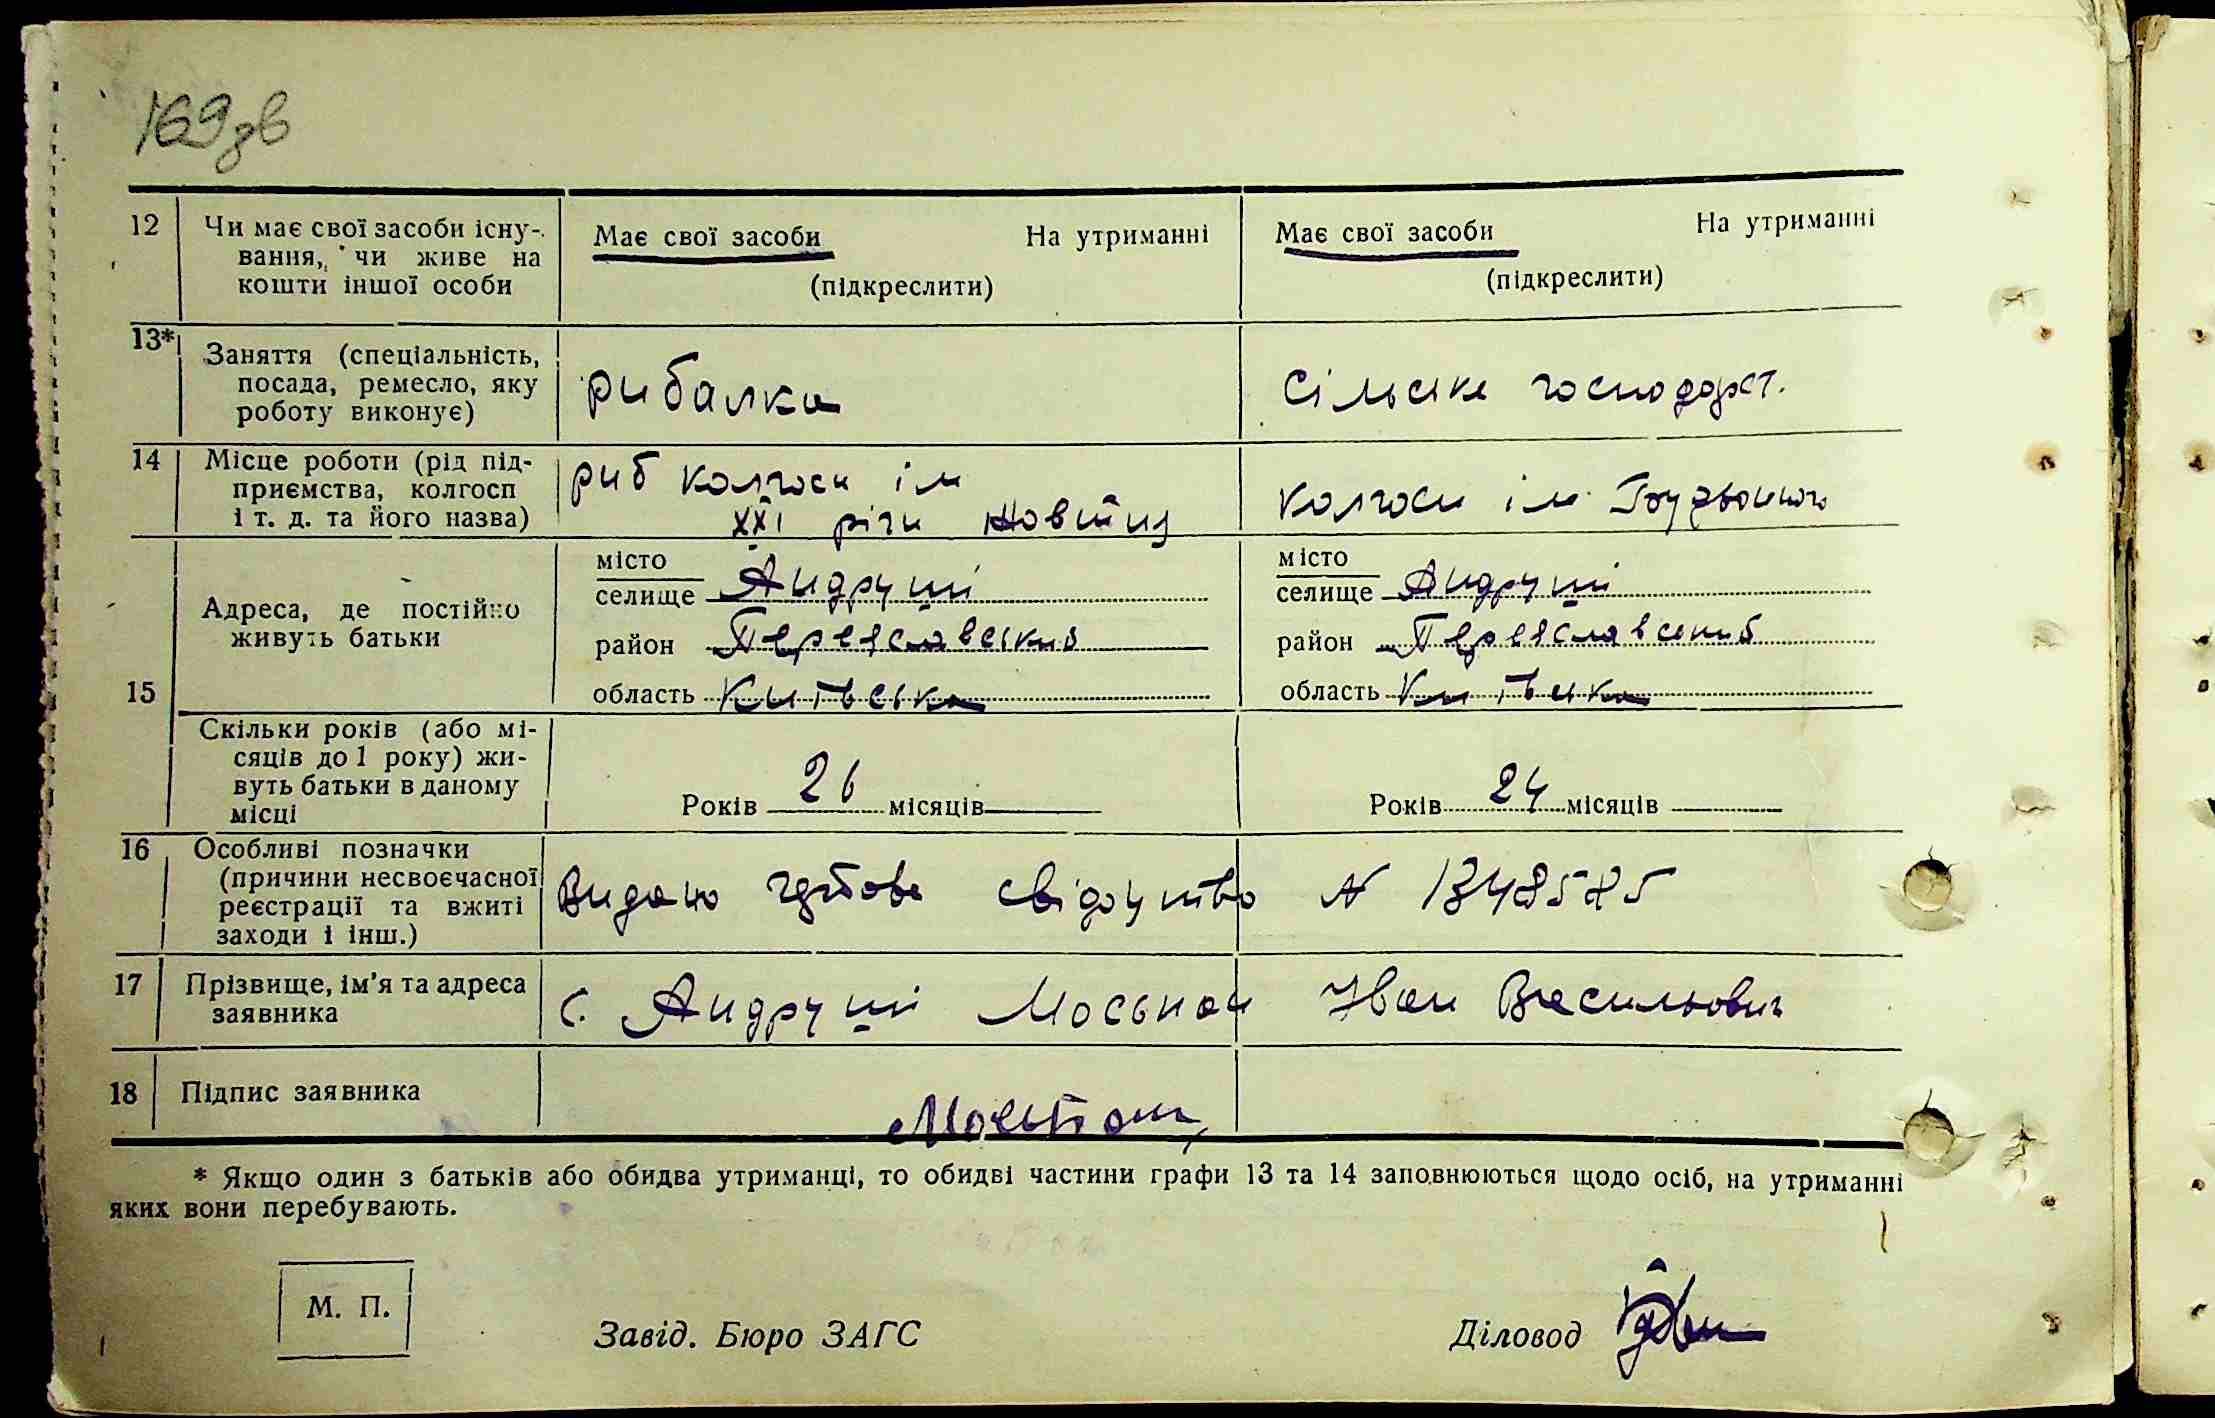 169зв
12 Чи має свої засоби існу-
вання, чи живе на
кошти іншої особи
Має свої засоби На утриманні
(підкреслити)
Має свої засоби На утриманні
(підкреслити)
13* Заняття (спеціальність,
посада, ремесло, яку
роботу виконує)
рибалка
сільське господарст.
14 Місце роботи (рід під-
приємства, колгосп
і т. д. та його назва)
риб колгосп ім
XXI річчя Жовтня
колгосп ім. Будьонного
15 Адреса, де постійно
живуть батьки
місто
селище Андруші
район Переяславський
область Київська
місто
селище Андруші
район Переяславський
область Київська
Скільки років (або мі-
сяців до 1 року) жи-
вуть батьки в даному
місці
Років 26 місяців
Років 24 місяців
16 Особливі позначки
(причини несвоєчасної
реєстрації та вжиті
заходи і інш.)
Видано свідоцтво № 1348585
17 Прізвище, ім'я та адреса
заявника
с. Андруші Моськон Іван Васильович
18 Підпис заявника
* Якщо один з батьків або обидва утриманці, то обидві частини графи 13 та 14 заповнюються щодо осіб, на утриманні
яких вони перебувають.
М. П.
Завід. Бюро ЗАГС
Діловод